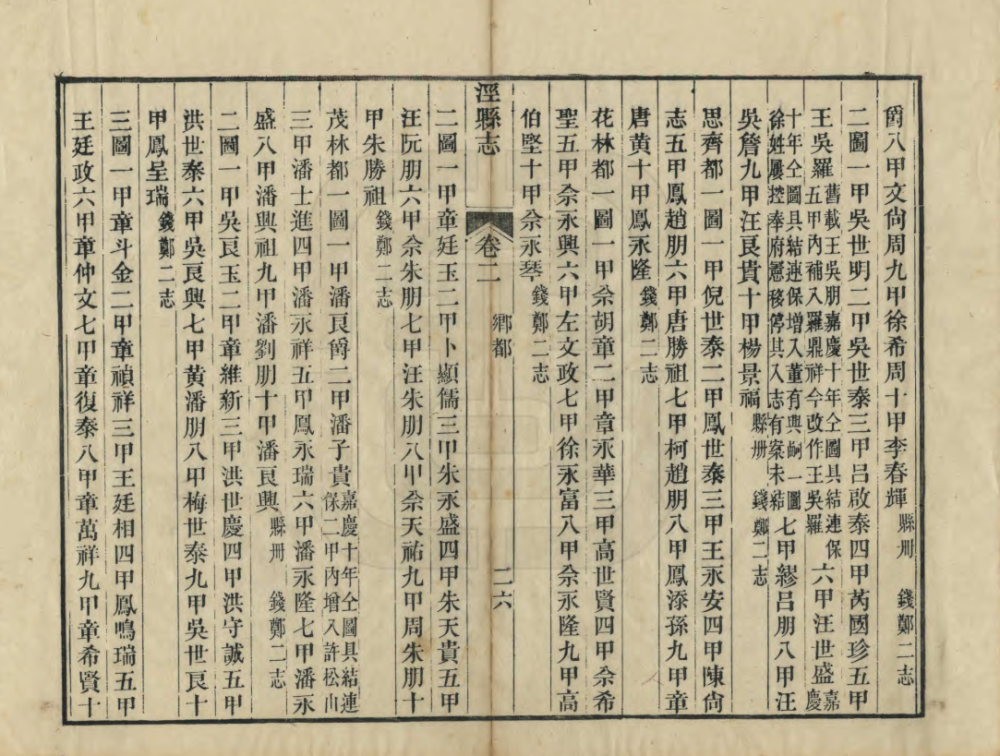 爵八甲文尙周九甲徐希周十甲李春輝縣冊錢鄭二志
二圖一甲吳世明二甲吳世泰三甲呂啟泰四甲芮國珍五甲
王吳羅舊載王吳朋嘉慶十年仝圖具結連保五甲內補入羅鼎祥今改作王吳羅六甲汪世盛嘉慶
十年仝圖具結連保增入董有與嗣一圖徐姓屢控奉府憲移停其入志有案未結七甲繆呂朋八甲汪
吳詹九甲汪良貴十甲楊景福縣冊錢鄭二志
思齊都一圖一甲倪世泰二甲鳳世泰三甲王永安四甲陳尙
志五甲鳳趙朋六甲唐勝祖七甲柯趙朋八甲鳳添孫九甲章
唐黃十甲鳳永隆錢鄭二志
花林都一圖一甲佘胡章二甲章永華三甲高世賢四甲佘希
聖五甲佘永興六甲左文政七甲徐永富八甲佘永隆九甲高
伯堅十甲佘永琴錢鄭二志
涇縣志 卷二 鄉都 二六
二圖一甲章廷玉二甲卜顯儒三甲朱永盛四甲朱天貴五甲
汪阮朋六甲佘朱朋七甲汪朱朋八甲佘天祐九甲周朱朋十
甲朱勝祖錢鄭二志
茂林都一圖一甲潘良爵二甲潘子貴嘉慶十年仝圖具結連保二甲內增入許松山
三甲潘士進四甲潘永祥五甲鳳永瑞六甲潘永隆七甲潘永
盛八甲潘興祖九甲潘劉朋十甲潘良興縣冊錢鄭二志
二圖一甲吳良玉二甲章維新三甲洪世慶四甲洪守誠五甲
洪世泰六甲吳良興七甲黃潘朋八甲梅世泰九甲吳世良十
甲鳳呈瑞錢鄭二志
三圖一甲章斗金二甲章禎祥三甲王廷相四甲鳳鳴瑞五甲
王廷政六甲章仲文七甲章復泰八甲章萬祥九甲章希賢十